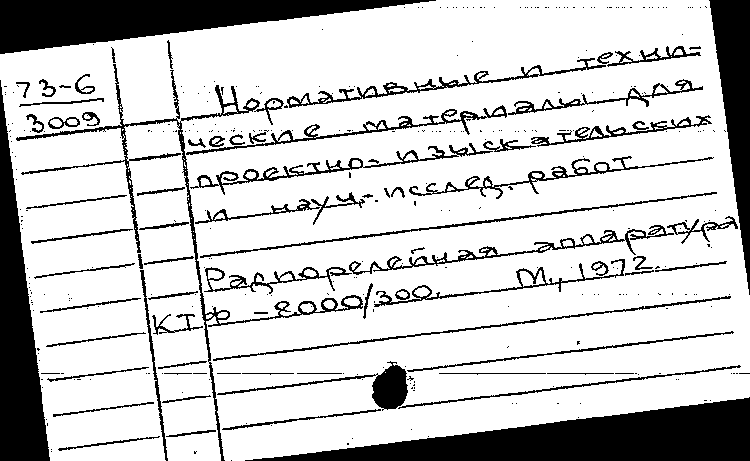 73-6
3009
Нормативные и техни-
ческие материалы для
проектно-изыскательских
и науч.-исслед. работ
Радиорелейная аппаратура
КТФ-8000/300. М., 1972.